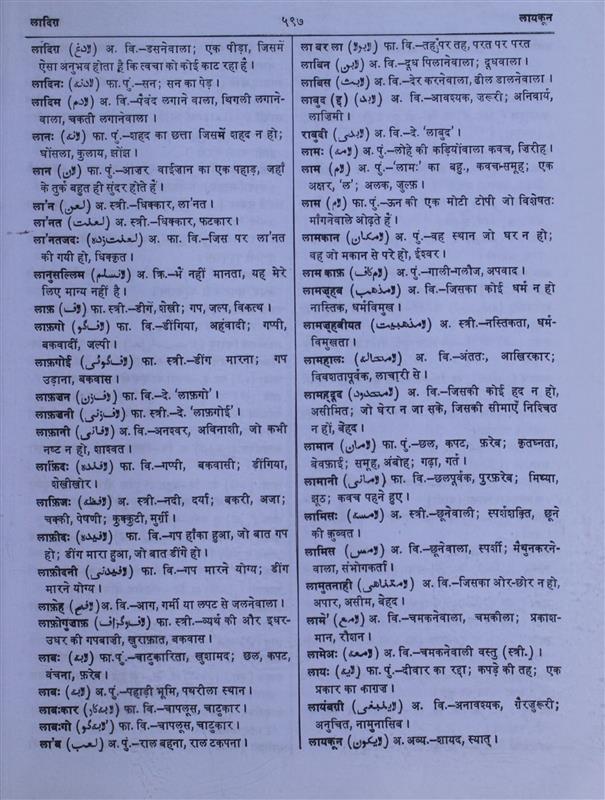 लादिरा
५९७
लायकून
लादिरा (لادغ) अ. वि.–डसनेवाला; एक पीड़ा, जिसमें
ऐसा अनुभव होता है कि त्वचा को कोई काट रहा है।
लादिनः (لادنه) फा. पुं.–सन; सन का पेड़।
लादिम (لادم) अ. वि.–पैवंद लगाने वाला, थिगली लगाने-
वाला, चकती लगानेवाला।
लानः (لانه) फा. पुं.–शहद का छत्ता जिसमें शहद न हो;
घोंसला, कुलाय, सोंज्ञ।
लान (لان) फा. पुं.–आज़र बाईजान का एक पहाड़, जहाँ
के तुर्क बहुत ही सुंदर होते हैं।
ला'न (لعن) अ. स्त्री.–धिक्कार, ला'नत।
ला'नत (لعنت) अ. स्त्री.–धिक्कार, फटकार।
ला'नतज़दः (لعنت‌زده) अ. फा. वि.–जिस पर ला'नत
की गयी हो, धिक्कृत।
लानुसल्लिम (لانسلم) अ. क्रि.–मैं नहीं मानता, यह मेरे
लिए मान्य नहीं है।
लाफ़ (لاف) फा. स्त्री.–डींगें, शेखी; गप, जल्प, विकत्थ।
लाफ़गो (لاف‌گو) फा. वि.–डींगिया, अहंवादी; गप्पी,
बकवादीं, जल्पी।
लाफ़गोई (لاف‌گوئی) फा. स्त्री.–डींग मारना; गप
उड़ाना, बकवास।
लाफ़ज़न (لاف‌زن) फा. वि.–दे. 'लाफ़गो'।
लाफ़ज़नी (لاف‌زنی) फा. स्त्री.–दे. 'लाफ़गोई'।
लाफ़ानी (لافانی) अ. वि.–अनश्वर, अविनाशी, जो कभी
नष्ट न हो, शाश्वत।
लाफ़िदः (لافنده) फा. वि.–गप्पी, बकवासी; डींगिया,
शेखीखोर।
लाफ़िज़ः (لافظه) अ. स्त्री.–नदी, दर्या; बकरी, अजा;
चक्की, पेषणी; कुक्कुटी, मुर्ग़ी।
लाफ़ीदः (لافیده) फा. वि.–गप हाँका हुआ, जो बात गप
हो; डींग मारा हुआ, जो बात डींगें हो।
लाफ़ीदनी (لافیدنی) फा. वि.–गप मारने योग्य; डींग
मारने योग्य।
लाफ़ेह (لافح) अ. वि.–आग, गर्मी या लपट से जलनेवाला।
लाफ़ोगुज़ाफ़ (لاف‌وگزاف) फा. स्त्री.–व्यर्थ की और इधर-
उधर की गपबाज़ी, खुराफ़ात, बकवास।
लाबः (لابه) फा. पुं.–चाटुकारिता, खुशामद; छल, कपट,
वंचना, फ़रेब।
लाबः (لابه) अ. पुं.–पहाड़ी भूमि, पथरीला स्थान।
लाबःकार (لابه‌کار) फा. वि.–चापलूस, चाटुकार।
लाबःगो (لابه‌گو) फा. वि.–चापलूस, चाटुकार।
ला'ब (لعب) अ. पुं.–राल बहना, राल टपकना।
ला बर ला (لابرلا) फा. वि.–तह पर तह, परत पर परत
लाबिन (لابن) अ. वि.–दूध पिलानेवाला; दूधवाला।
लाबिस (لابث) अ. वि.–देर करनेवाला, ढील डालनेवाला।
लाबुद (द्द) (لابد) अ. वि.–आवश्यक, ज़रूरी; अनिवार्य,
लाज़िमी।
राबुदी (لابدی) अ. वि.–दे. 'लाबुद'।
लामः (لامه) अ. पुं.–लोहे की कड़ियोंवाला कवच, ज़िरीह।
लाम (لام) अ. पुं.–'लामः' का बहु., कवच-समूह; एक
अक्षर, 'ल'; अलक, जुल्फ़।
लाम (لام) फा. पुं.–ऊन की एक मोटी टोपी जो विशेषतः
माँगनेवाले ओढ़ते हैं।
लामकान (لامکان) अ. पुं.–वह स्थान जो घर न हो;
वह जो मकान से परे हो, ईश्वर।
लाम काफ़ (لام‌کاف) अ. पुं.–गाली-गलौज, अपवाद।
लामज़हब (لامذهب) अ. वि.–जिसका कोई धर्म न हो
नास्तिक, धर्मविमुख।
लामज़हबीयत (لامذهبیت) अ. स्त्री.–नस्तिकता, धर्म-
विमुखता।
लामहालः (لامحاله) अ. वि.–अंततः, आखिरकार;
विवशतापूर्वक, लाचारी से।
लामहदूद (لامحدود) अ. वि.–जिसकी कोई हद न हो,
असीमित; जो घेरा न जा सके, जिसकी सीमाएँ निश्चित
न हों, बेहद।
लामान (لامان) फा. पुं.–छल, कपट, फ़रेब; कृतघ्नता,
बेवफ़ाई; समूह, अंबोह; गढ़ा, गर्त।
लामानी (لامانی) फा. वि.–छलपूर्वक, पुरफ़रेब; मिथ्या,
झूठ; कवच पहने हुए।
लामिसः (لامسه) अ. स्त्री.–छूनेवाली; स्पर्शशक्ति, छूने
की क़ुव्वत।
लामिस (لامس) अ. वि.–छूनेवाला, स्पर्शी; मैथुन करने-
वाला, संभोगकर्ता।
लामुतनाही (لامتناهی) अ. वि.–जिसका ओर-छोर न हो,
अपार, असीम, बेहद।
लामे' (لامع) अ. वि.–चमकनेवाला, चमकीला; प्रकाश-
मान, रौशन।
लामेअः (لامعه) अ. वि.–चमकनेवाली वस्तु (स्त्री.)।
लायः (لایه) फा. पुं.–दीवार का रद्दा; कपड़े की तह; एक
प्रकार का काग़ज़।
लायंबग़ी (لاینبغی) अ. वि.–अनावश्यक, ग़ैरज़ुरूरी;
अनुचित, नामुनासिब।
लायकून (لایکون) अ. अव्य.–शायद, स्यात्।